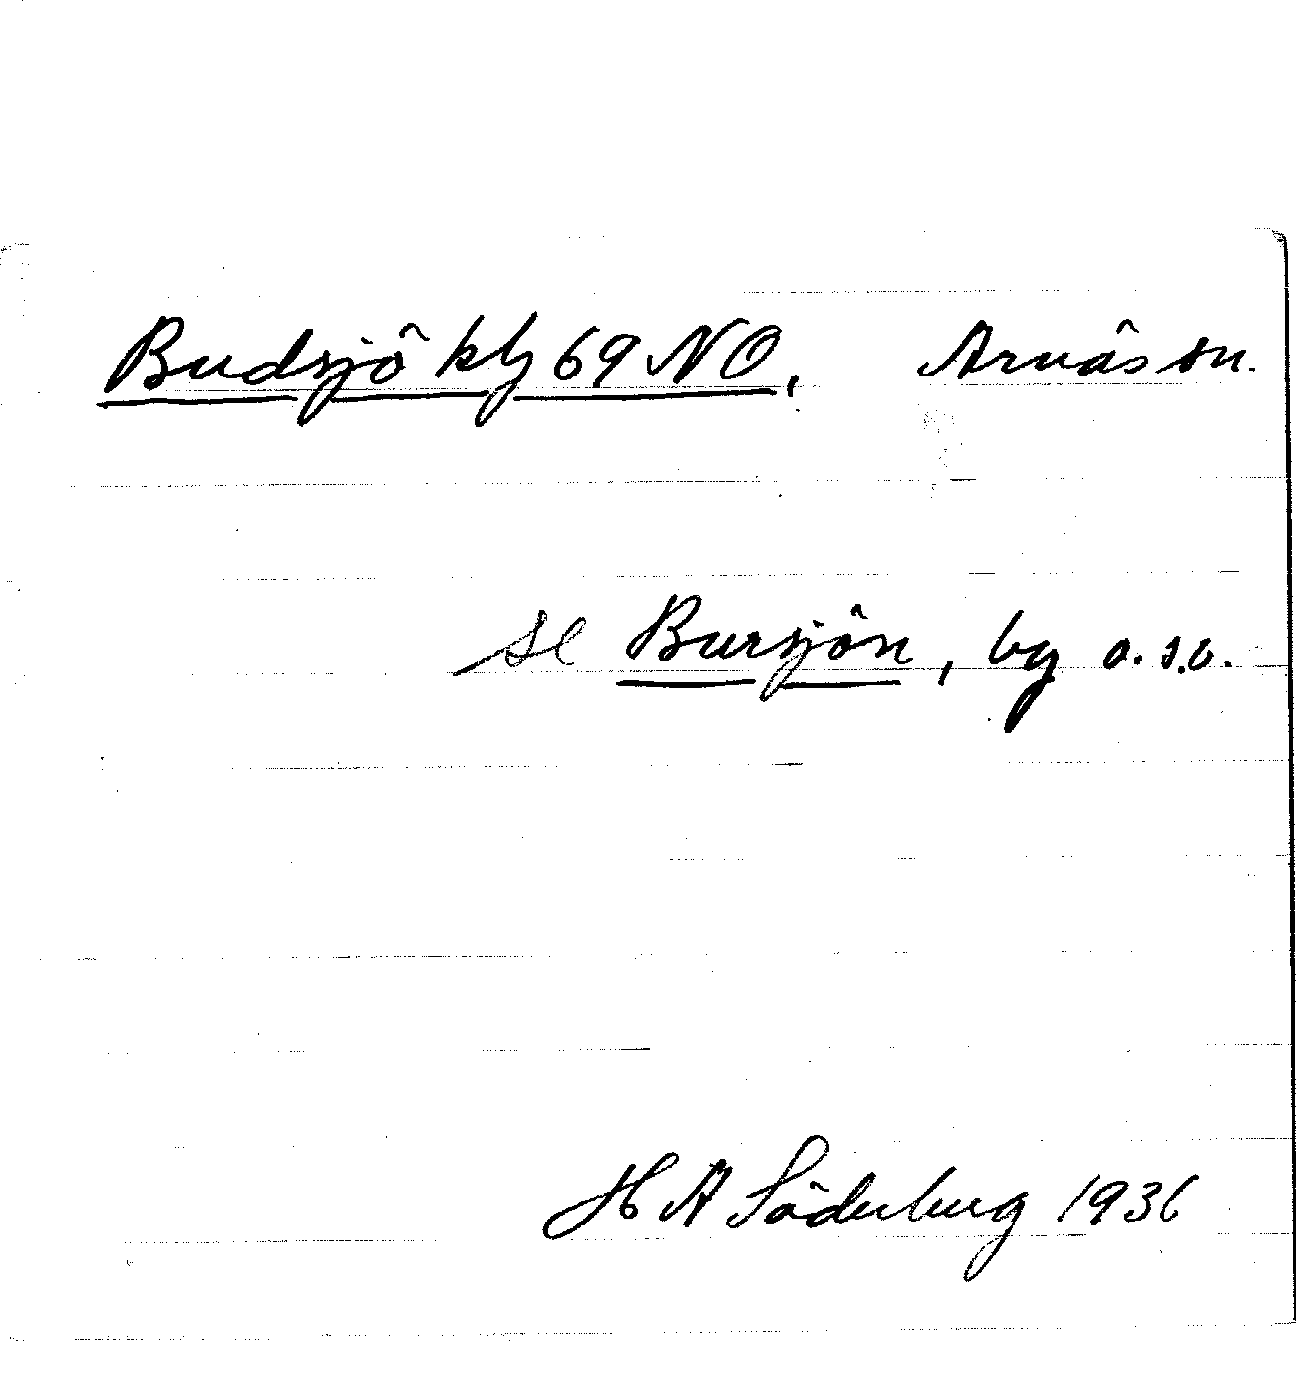 Budsjö kbl 69 NO, Arnäs sn.
se Bursjön, by o.s.v.
H A Söderberg 1936